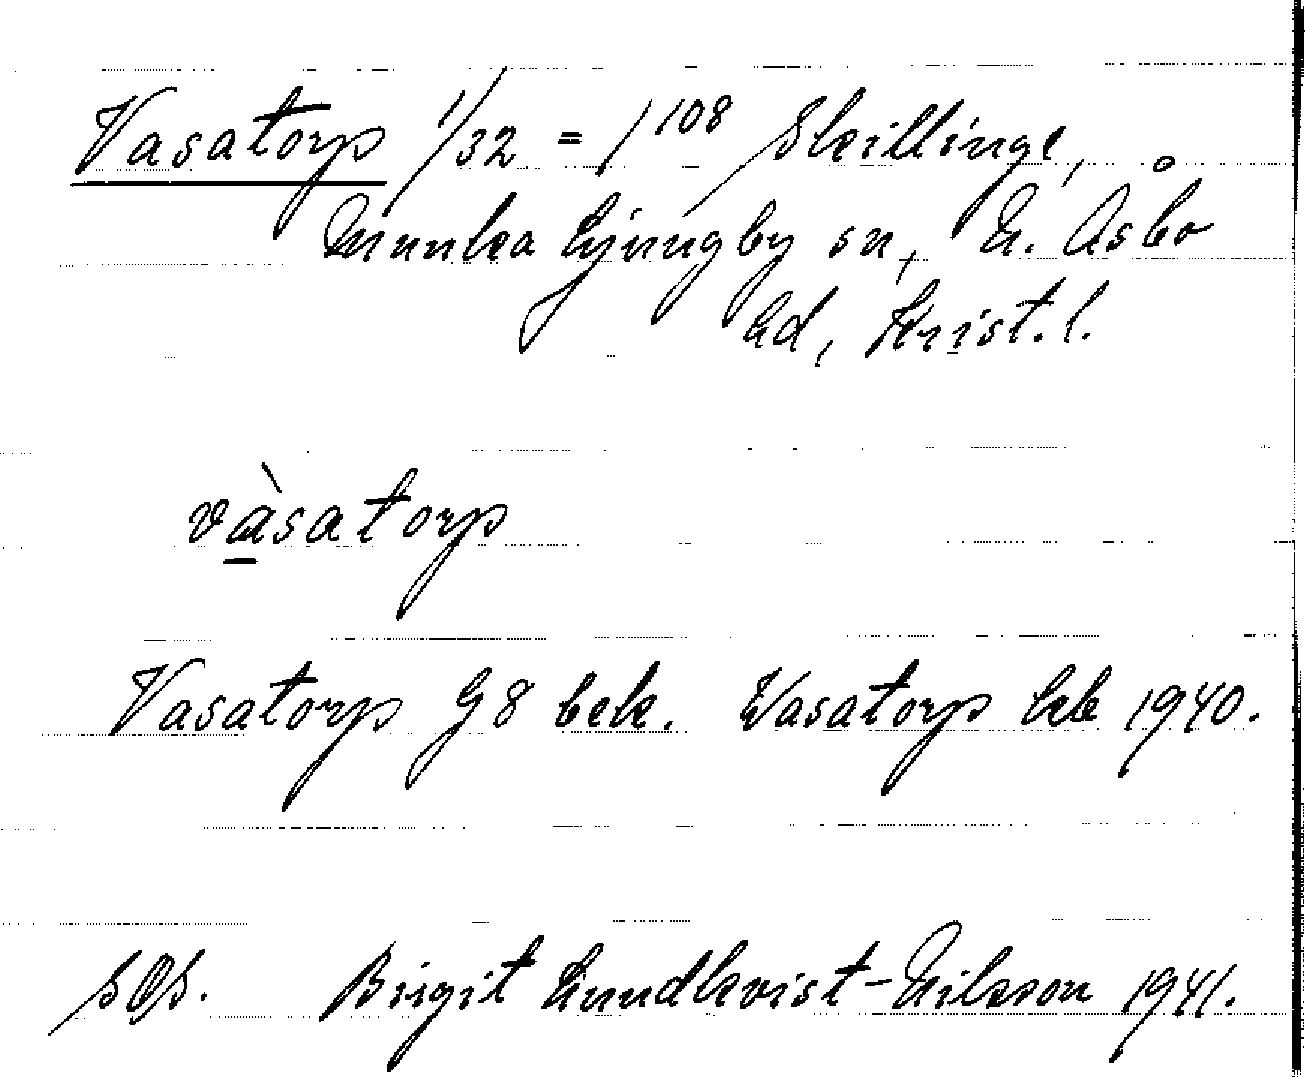 Vasatorp 1/32 = 1¹⁰⁸ Skillinge,
Munka Ljungby sn, N. Åsbo
hd, Krist. l.
vàsatorp
Vasatorp G8 bek. Vasatorp Lkb 1940.
SOS. Birgit Lundkvist-Nilsson 1941.